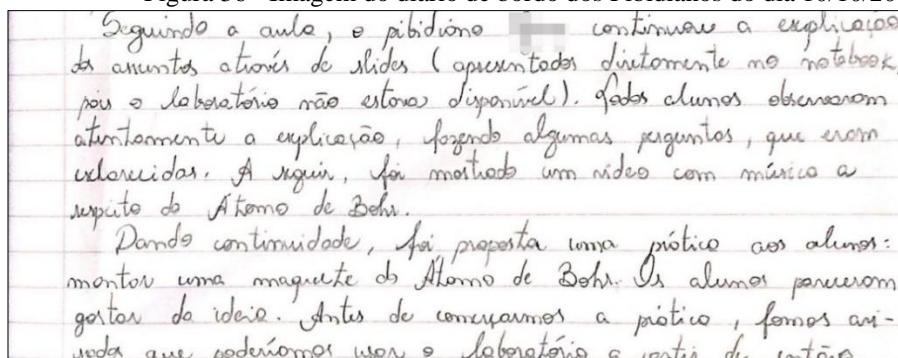 Seguindo a aula, o pibidiano continuou a explicação
dos assuntos através de slides (apresentados diretamente no notebook,
pois o laboratório não estava disponível). Todos alunos observaram
atentamente a explicação, fazendo algumas perguntas, que eram
esclarecidas. A seguir, foi mostrado um vídeo com música a
respeito do Átomo de Bohr.
Dando continuidade, foi proposta uma prática aos alunos:
montar uma maquete do Átomo de Bohr. Os alunos pareceram
gostar da ideia. Antes de começarmos a prática, fomos avi-
sados que poderíamos usar o laboratório a partir de então